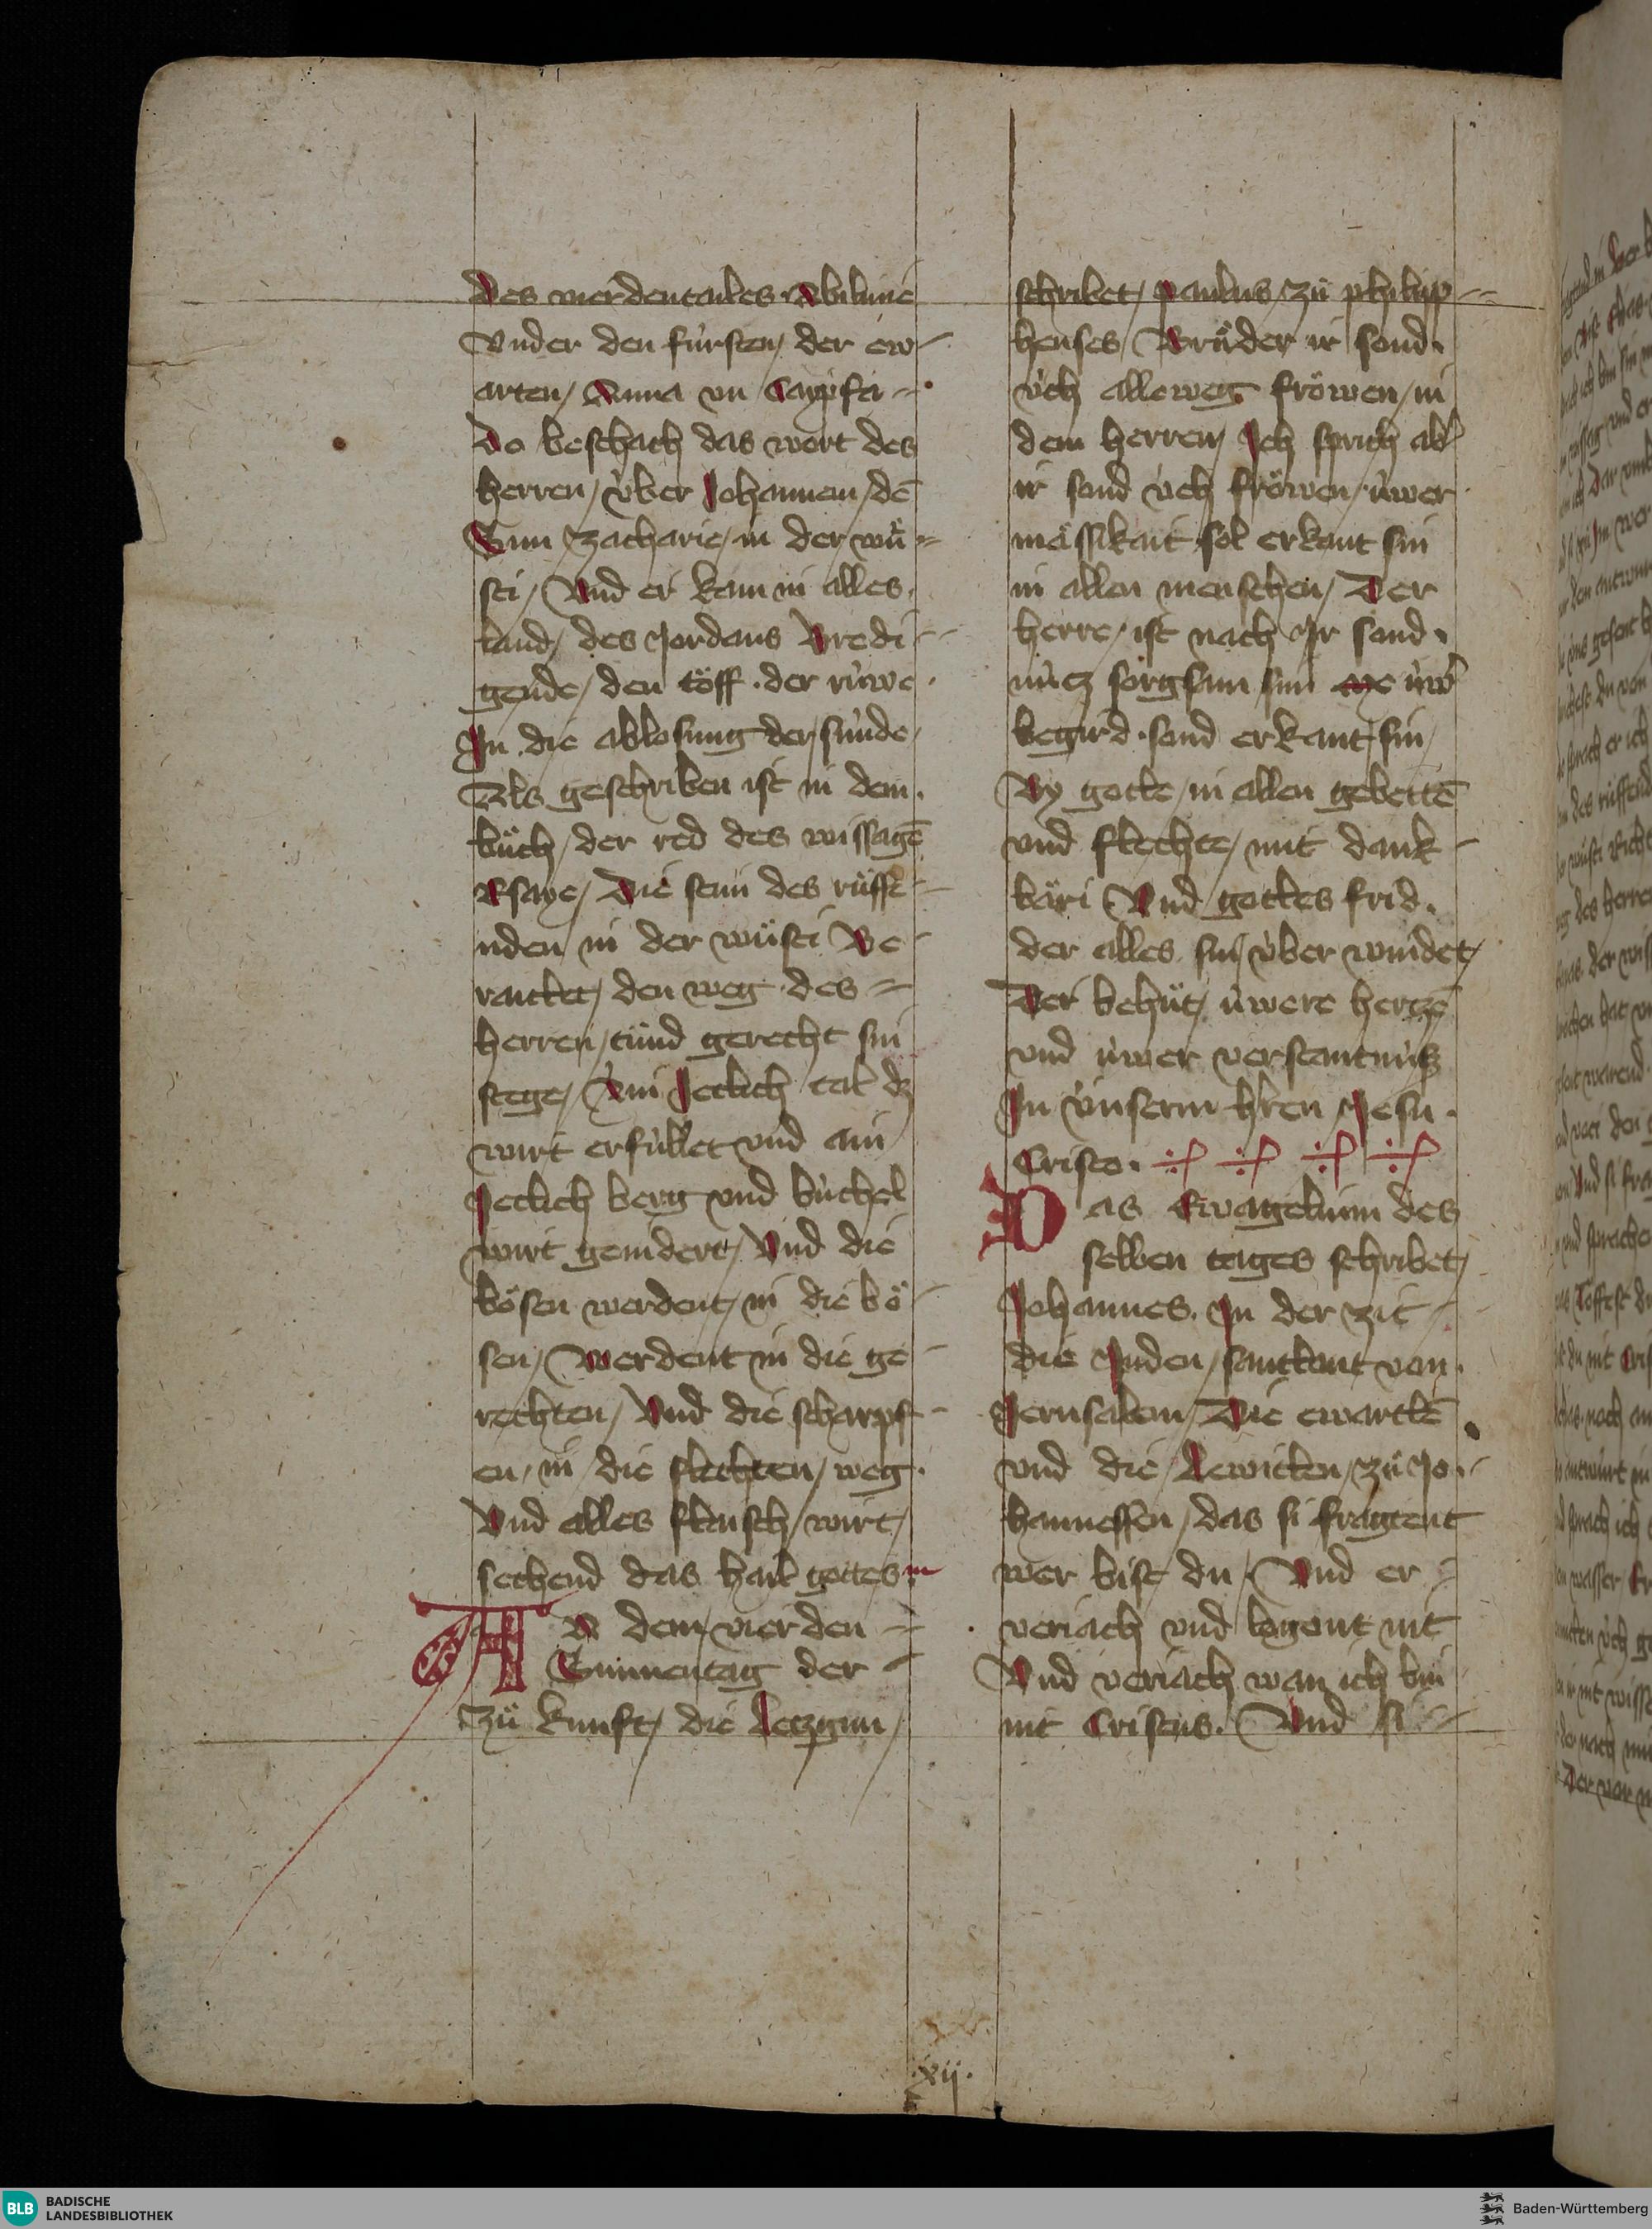 des vierdentailes Abiline
Vnder den fúrsten / der ew-
arten / Anna vn Caypfa =
do beschach das wort des
herren / v́ber Johannem / dē
Sun Zacharie / in der wuͤ =
sti / Vnd er kam in alles
land / des Jordans Bredi -
gende / den töff . der rúwe .
In die ablosung der súnde /
Als geschriben ist in dem .
buͦch / der red des wissagē
Esaye / Die stim des ruͤffe =
nden / in der wuͤsti Be -
raitket / den weg des =
herren / tuͦnd gerecht sin
stege / Ain Jetlich tal dz
wirt erfúllet vnd ain
Jetlich berg vnd búchel
wirt genidert / Vnd die
bösen werdent / in die bö -
sen / Werdent in die ge -
rechten / Vnd die scharpf -
en / in die slechten / weg .
Vnd alles flaisch / wirt /
sechend das hail gottes
An dem vierden =
Sunnentag der =
Zuͦ kunft / die letzgun /
schribet / paulus / zuͦ philip =
henses / Bruͤder ir sond .
v́ch alleweg fröwen / in
dem herren / Ich sprich ab̛
ir sond v́ch fröwen / úwer
mässikait sol erkant sin
in allen menschen / Der
herre / ist nach Ir sand .
nútz sorgsam sin úw̛
begird . sond erkant sin /
By gotte / in allen gebettē
vnd flechte / mit dank -
bäri Vnd gottes frid .
der alles sin / v́ber windet /
Der behuͤt / úwere hertzē
vnd úwer verstantnúß
In v́nserm hren Jesu .
Cristo .
Das Ewagelium des
selben tages schribet /
Johannes . In der zit -
die Juden / santtent von .
Jerusalem / Die ewartē
vnd die / Lewitten / zuͦ Jo . -
hannessen / das si fragtent
wer bist du / Vnd er =
veriach vnd logent nit
Vnd veriach wan ich bin
nit Cristus . Vnd si =
xij .
BLB
BADISCHE
LANDESBIBLIOTHEK
Baden-Württemberg